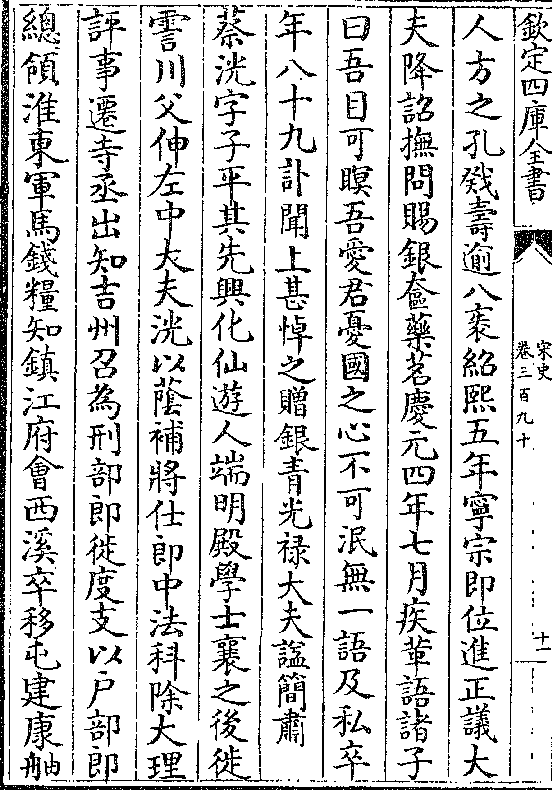 欽定四庫全書
宋史
卷三百九十
十一
人方之孔戣壽逾八袠紹熙五年寧宗即位進正議大
夫降詔撫問賜銀奩藥茗慶元四年七月疾革語諸子
曰吾目可瞑吾愛君憂國之心不可泯無一語及私卒
年八十九訃聞上甚悼之贈銀青光禄大夫謚簡肅
蔡洸字子平其先興化仙遊人端明殿學士襄之後徙
霅川父伸左中大夫洸以蔭補將仕郎中法科除大理
評事遷寺丞出知吉州召為刑部郎徙度支以戶部郎
總領淮東軍馬錢糧知鎮江府會西溪卒移屯建康舳